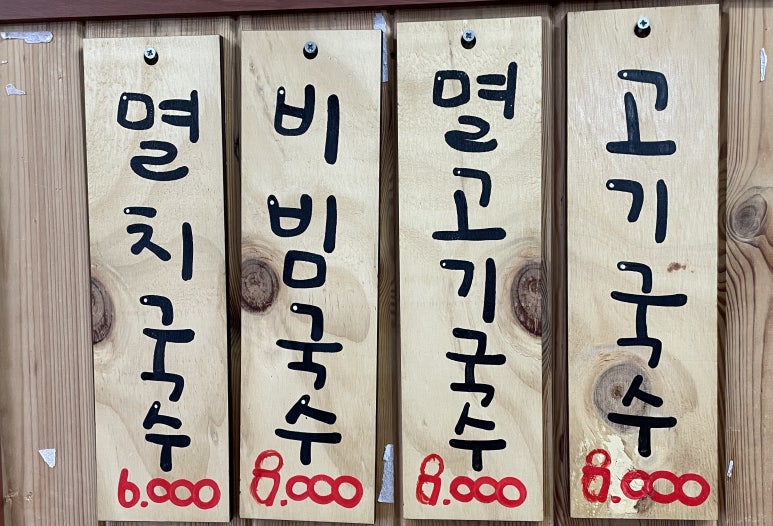 멸치국수
6.000
비빔국수
8.000
멸고기국수
8.000
고기국수
8.000